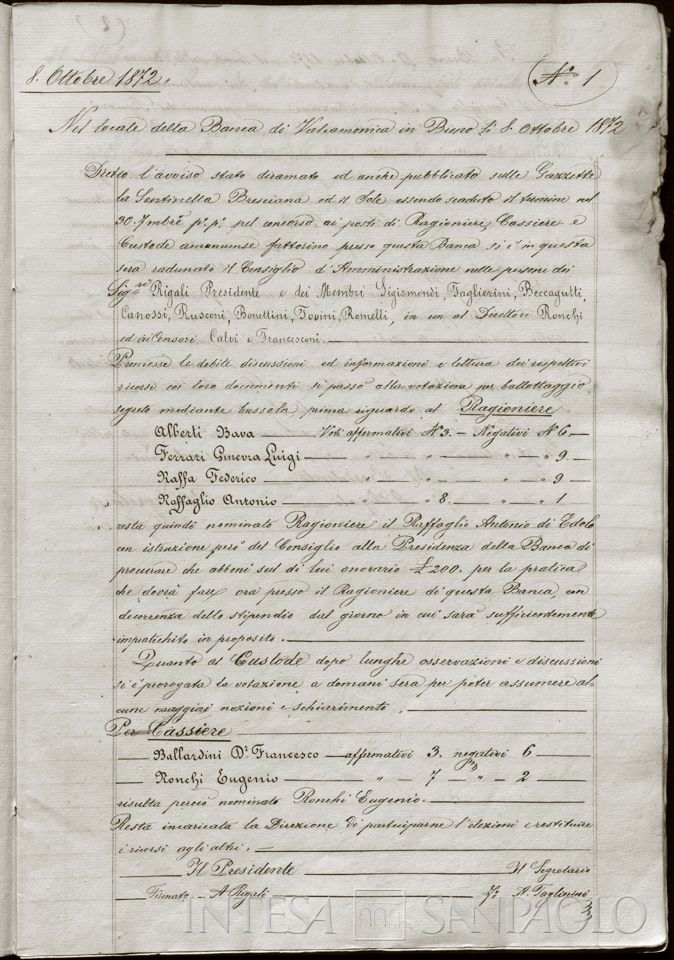 8. Ottobre 1872.
N.° 1
Nel locale della Banca di Valcamonica in Breno li 8. Ottobre 1872
Dietro l'avviso stato diramato ed anche pubblicato sulle Gazzette
la Sentinella Bresciana ed il Sole essendo scaduto il termine nel
30. 7mbre p.° p.° pel concorso ai posti di Ragioniere, Cassiere e
Custode amanuense fattorino presso questa Banca, si è in questa
sera radunato il Consiglio d'Amministrazione nelle persone dei
Sig.ri Rigali Presidente e dei Membri Sigismondi, Taglierini, Beccagutti,
Canossi, Rusconi, Bonettini, Tovini, Romelli, in un al Direttore Ronchi
ed ai Censori Calvi e Francesconi.
Premesse le debite discussioni ed informazioni e lettura dei respettivi
ricorsi coi loro documenti si passò alla votazione per ballottaggio
segreto mediante bussola prima riguardo al Ragioniere
Alberti Bava — Voti affermativi N 3. — Negativi N 6 —
Ferrari Ginevra Luigi — " — " — " — " 9. —
Raffa Federico — " — " — " — " 9 —
Raffaglio Antonio — " — " 8. — " — " 1
resta quindi nominato Ragioniere il Raffaglio Antonio di Edolo
con istruzione però del Consiglio alla Presidenza della Banca di
procurare che abboni sul di lui onorario £ 200. per la pratica
che dovrà fare ora presso il Ragioniere di questa Banca, con
decorrenza dello stipendio dal giorno in cui sarà sufficientemente
impratichito in proposito.
Quanto al Custode dopo lunghe osservazioni e discussioni
si è prorogata la votazione a domani sera per poter assumere al-
cune maggiori nozioni e schiarimento
Per Cassiere
Ballardini Dr Francesco — affirmativi 3. negativi 6 —
Ronchi Eugenio — " — 7 " — 2 —
risulta perciò nominato Ronchi Eugenio.
Resta incaricata la Direzione di parteciparne l'elezioni e restituire
i ricorsi agli altri.
Il Presidente — Il Segretario
Firmato — A Rigali — A. Taglierini
INTESA SANPAOLO